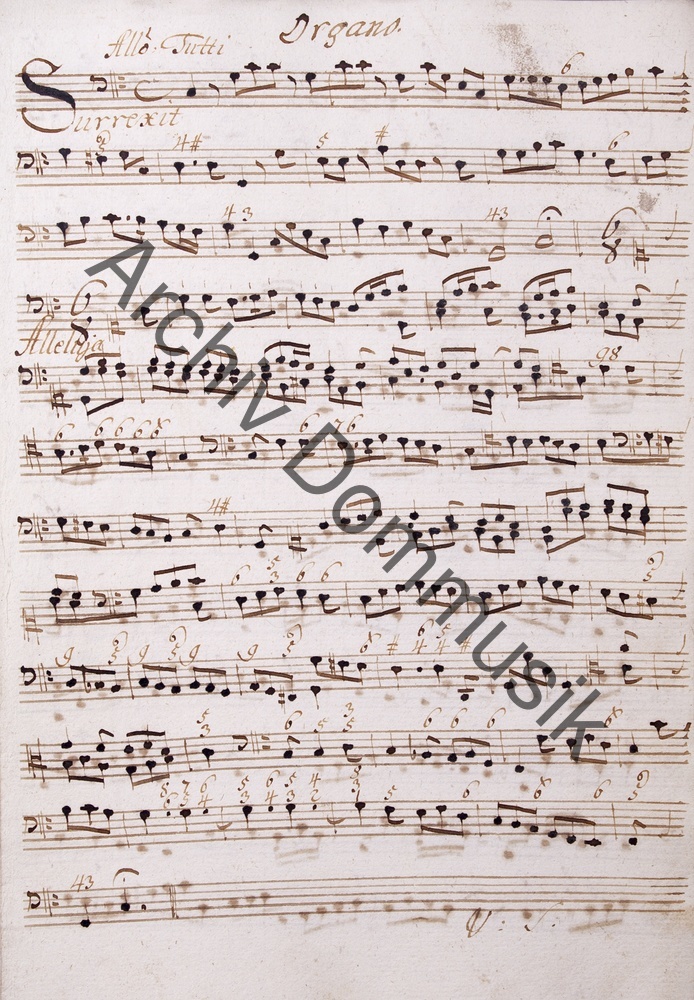 Organo.
Allº. Tutti
Surrexit
Alleluja
V: S:
Archiv Dommusik